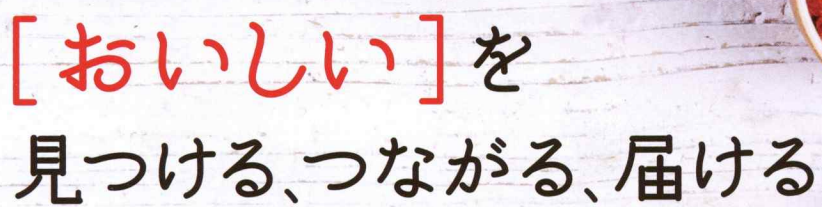 [おいしい]を
見つける、つながる、届ける